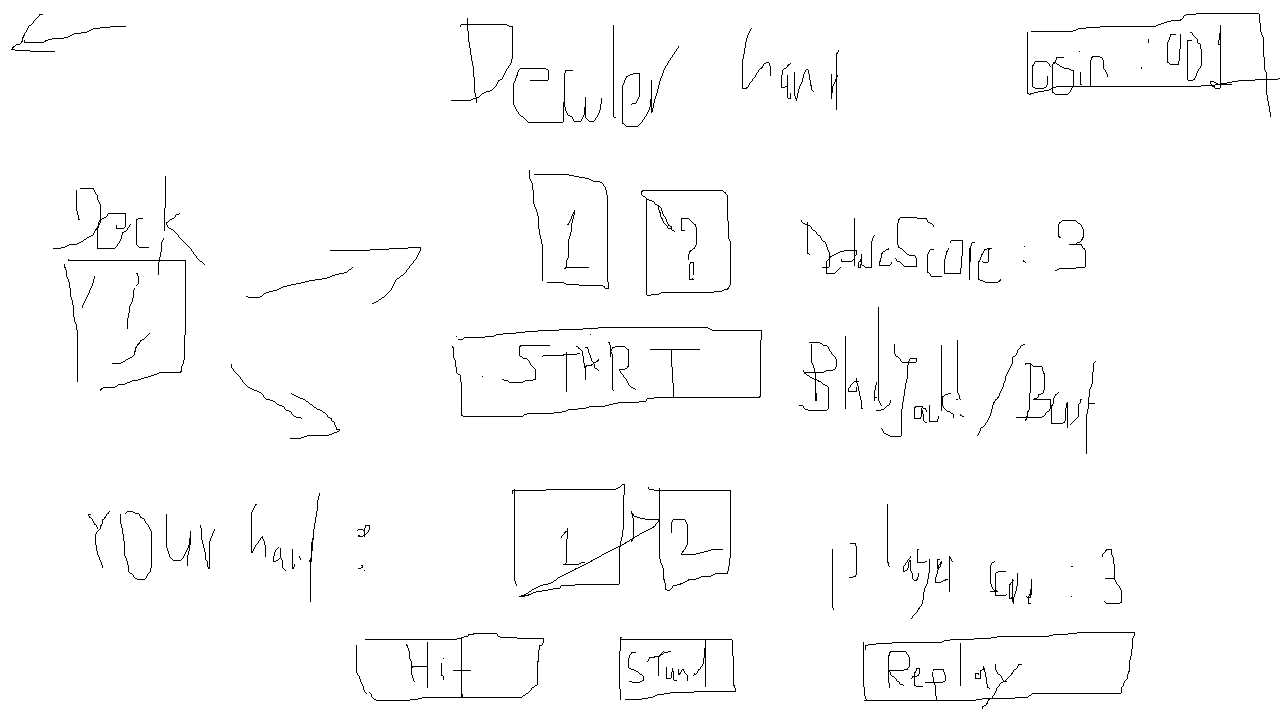 Dealer hand
Deck
1 ?
Score : 3
START
BlackJack! / Bust
YOUR hand :
1 2
player score : 3
Hit
STand
Replay